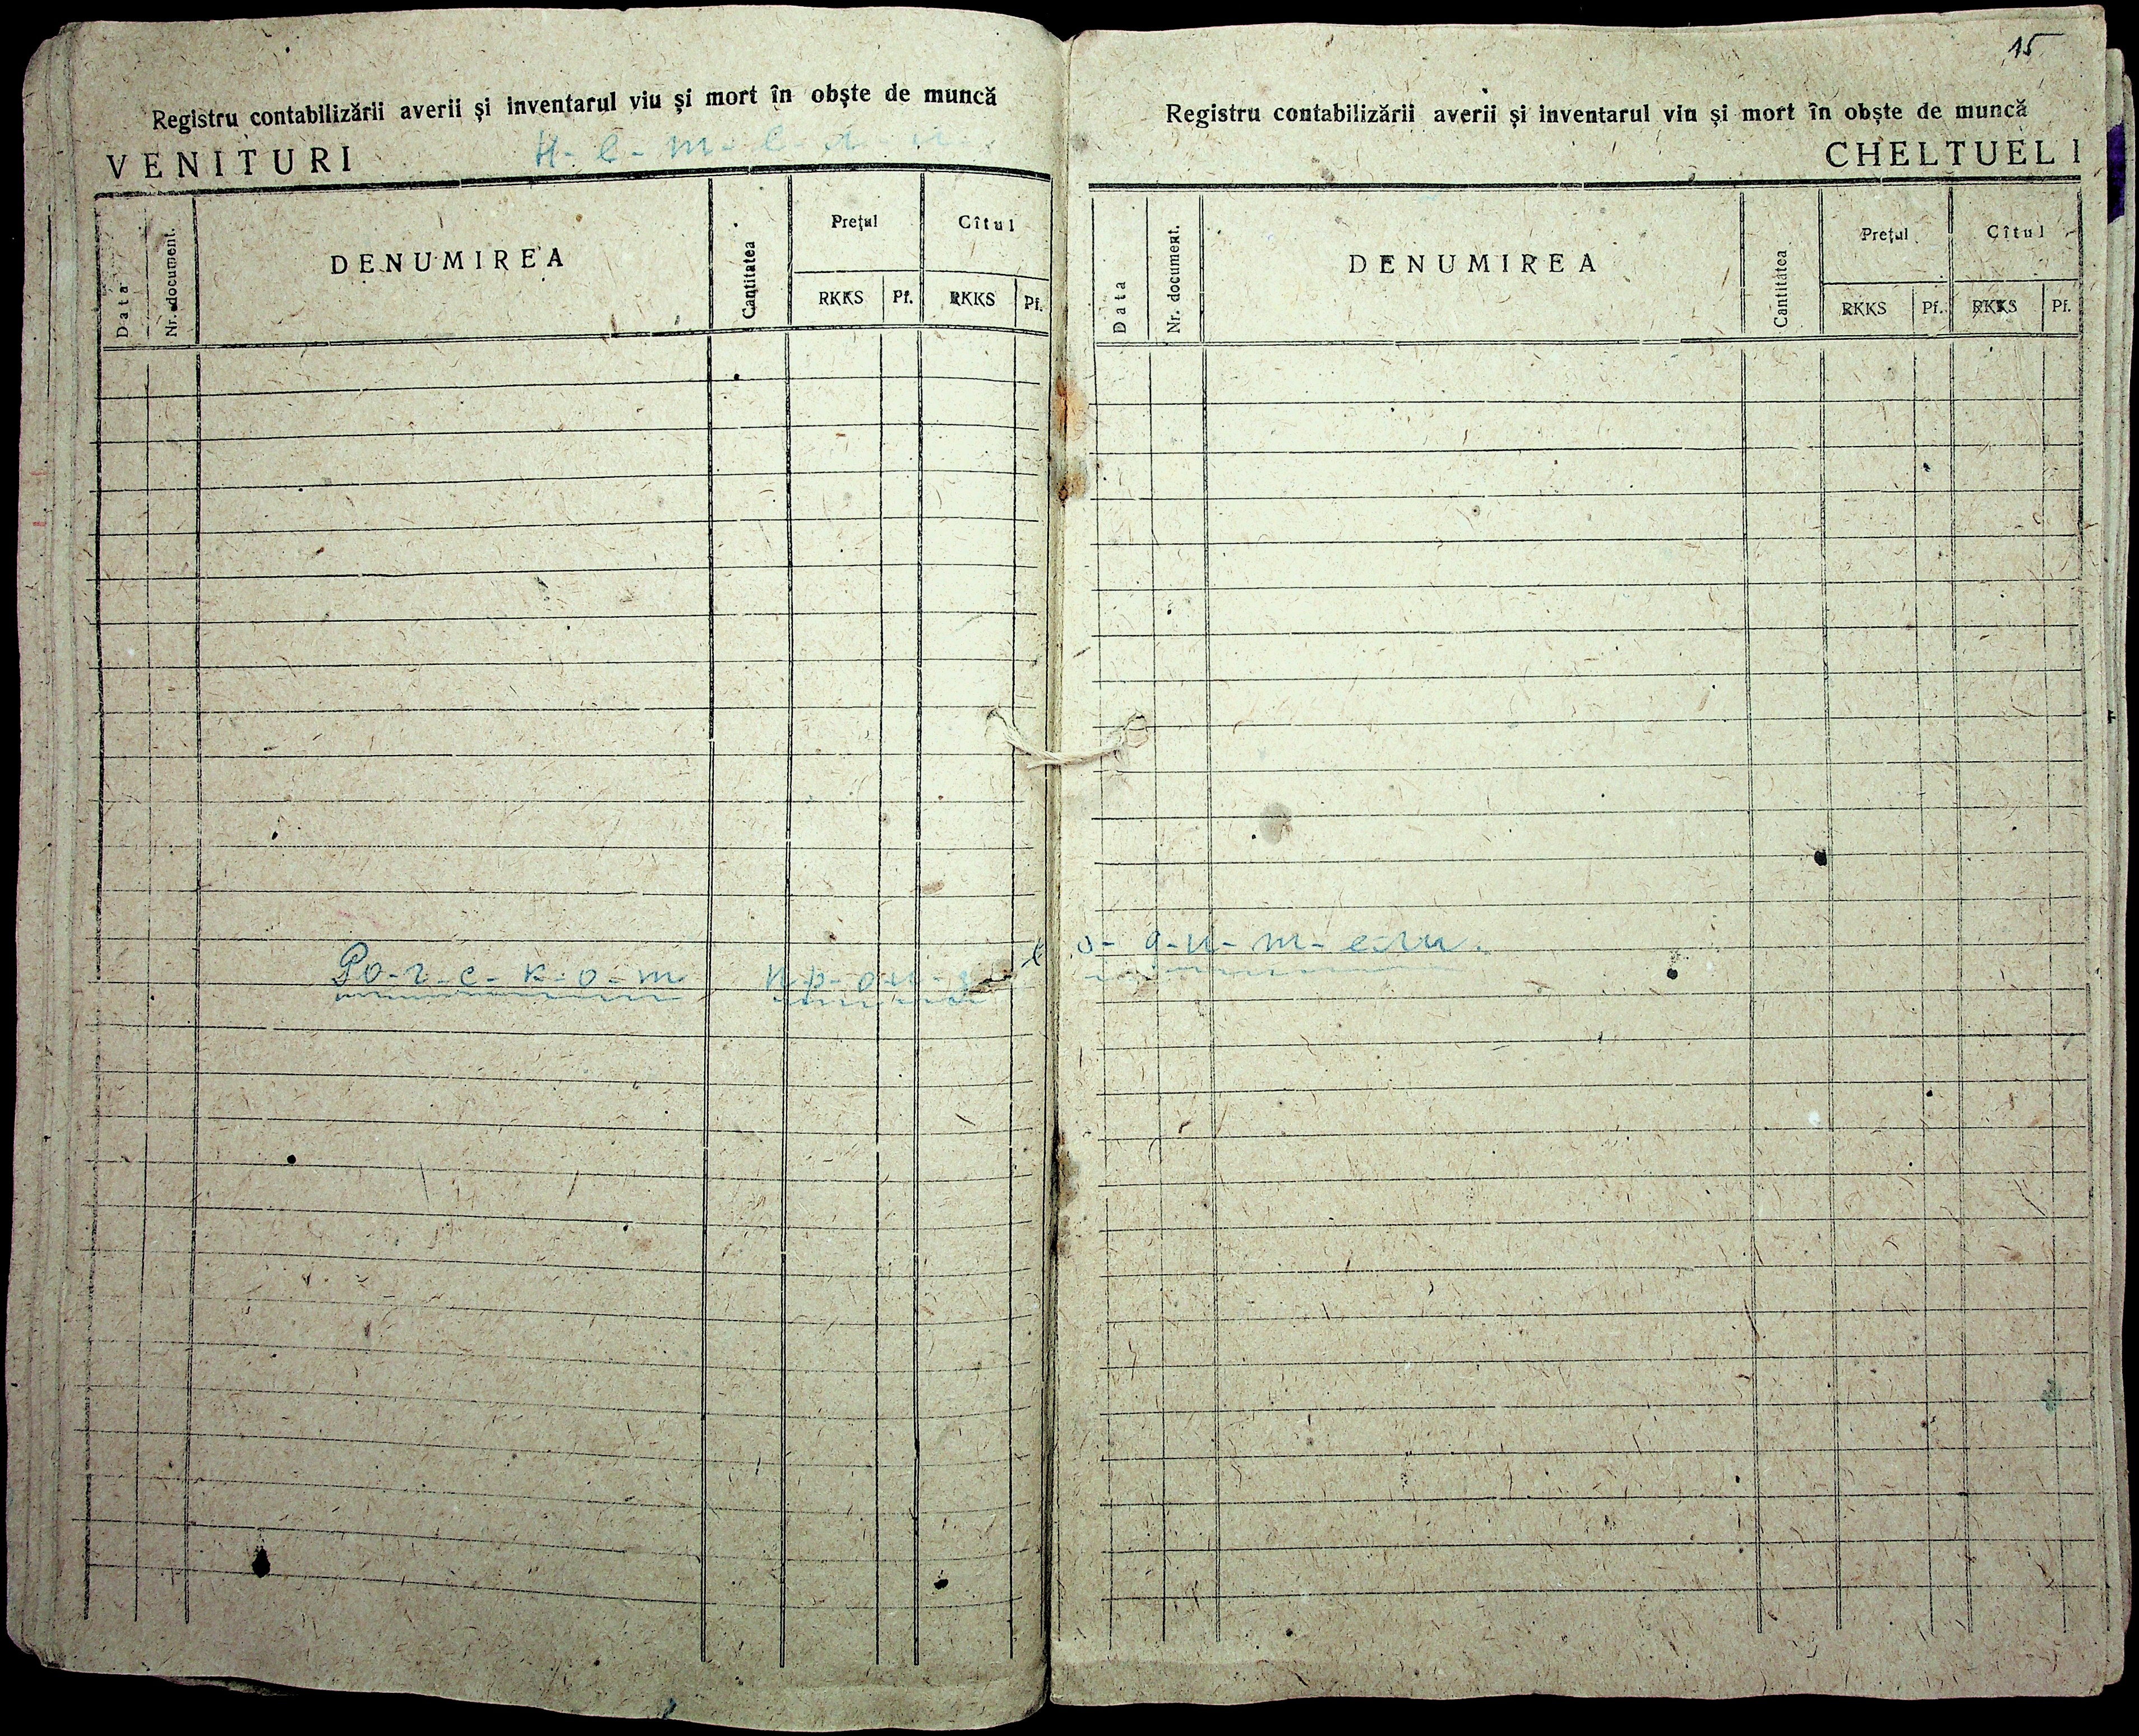 Registru contabilizării averii şi inventarul viu şi mort în obşte de muncă
VENITURI
Data
Nr. document.
DENUMIREA
Cantitatea
Preţul
Cîtul
RKKS
Pf.
RKKS
Pf.
15
Registru contabilizării averii şi inventarul viu şi mort în obşte de muncă
CHELTUELI
Data
Nr. document.
DENUMIREA
Cantitatea
Preţul
Cîtul
RKKS
Pf.
RKKS
Pf.